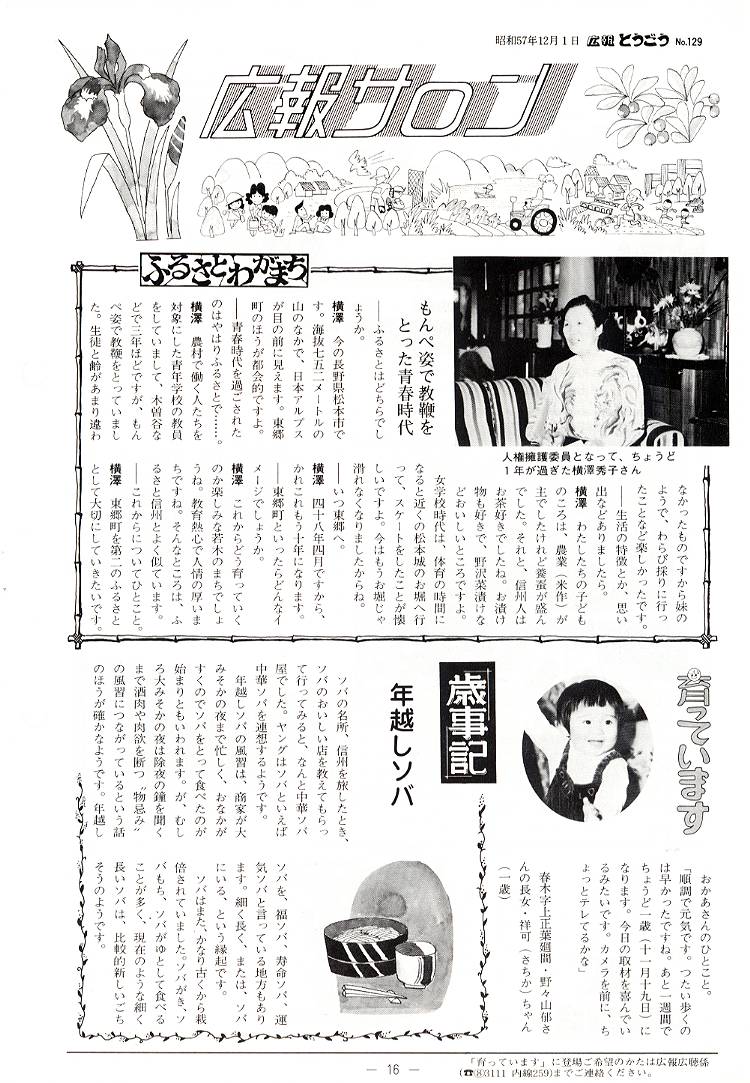 昭和57年12月1日 広報とうごう No.129
広報サロン
ふるさとわがまち
もんぺ姿で教鞭を
とった青春時代
人権擁護委員となって、ちょうど
1年が過ぎた横澤秀子さん
――ふるさとはどちらでし
ょうか。
横澤 今の長野県松本市で
す。海抜七五二メートルの
山のなかで、日本アルプス
が目の前に見えます。東郷
町のほうが都会的ですよ。
――青春時代を過ごされた
のはやはりふるさとで……。
横澤 農村で働く人たちを
対象にした青年学校の教員
をしていまして、木曽谷な
どで三年ほどですが、もん
ぺ姿で教鞭をとっていまし
た。生徒と齢があまり違わ
なかったものですから妹の
ようで、わらび採りに行っ
たことなど楽しかったです。
――生活の特徴とか、思い
出などありましたら。
横澤 わたしたちの子ども
のころは、農業(米作)が
主でしたけれど養蚕が盛ん
でした。それと、信州人は
お茶好きでしたね。お漬け
物も好きで、野沢菜漬けな
どおいしいところですよ。
女学校時代は、体育の時間に
なると近くの松本城のお堀へ行
って、スケートをしたことが懐
しいですよ。今はもうお堀じゃ
滑れなくなりましたからね。
――いつ東郷へ。
横澤 四十八年四月ですから、
かれこれもう十年になります。
――東郷町といったらどんなイ
メージでしょうか。
横澤 これからどう育っていく
のか楽しみな若木のまちでしょ
うね。教育熱心で人情の厚いま
ちですね。そんなところは、ふ
るさと信州とよく似ています。
――これからについてひとこと。
横澤 東郷町を第二のふるさと
として大切にしていきたいです。
育っています
おかあさんのひとこと。
「順調で元気です。つたい歩くの
は早かったですね。あと一週間で
ちょうど一歳(十一月十九日)に
なります。今日の取材を喜んでい
るみたいです。カメラを前に、ち
ょっとテレてるかな」
春木字上正葉廻間・野々山郁さ
んの長女・祥可(さちか)ちゃん
(一歳)
歳事記
年越しソバ
ソバの名所、信州を旅したとき、
ソバのおいしい店を教えてもらっ
て行ってみると、なんと中華ソバ
屋でした。ヤングはソバといえば
中華ソバを連想するようです。
年越しソバの風習は、商家が大
みそかの夜まで忙しく、おなかが
すくのでソバをとって食べたのが
始まりともいわれます。が、むし
ろ大みそかの夜は除夜の鐘を聞く
まで酒肉や肉欲を断つ“物忌み”
の風習につながっているという話
のほうが確かなようです。年越し
ソバを、福ソバ、寿命ソバ、運
気ソバと言っている地方もあり
ます。細く長く、または、ソバ
にいる、という縁起です。
ソバはまた、かなり古くから栽
倍されていました。ソバがき、ソ
バもち、ソバがゆとして食べる
ことが多く、現在のような細く
長いソバは、比較的新しいごち
そうのようです。
「育っています」に登場ご希望のかたは広報広聴係
(☎⑧3111 内線259)までご連絡ください。
― 16 ―